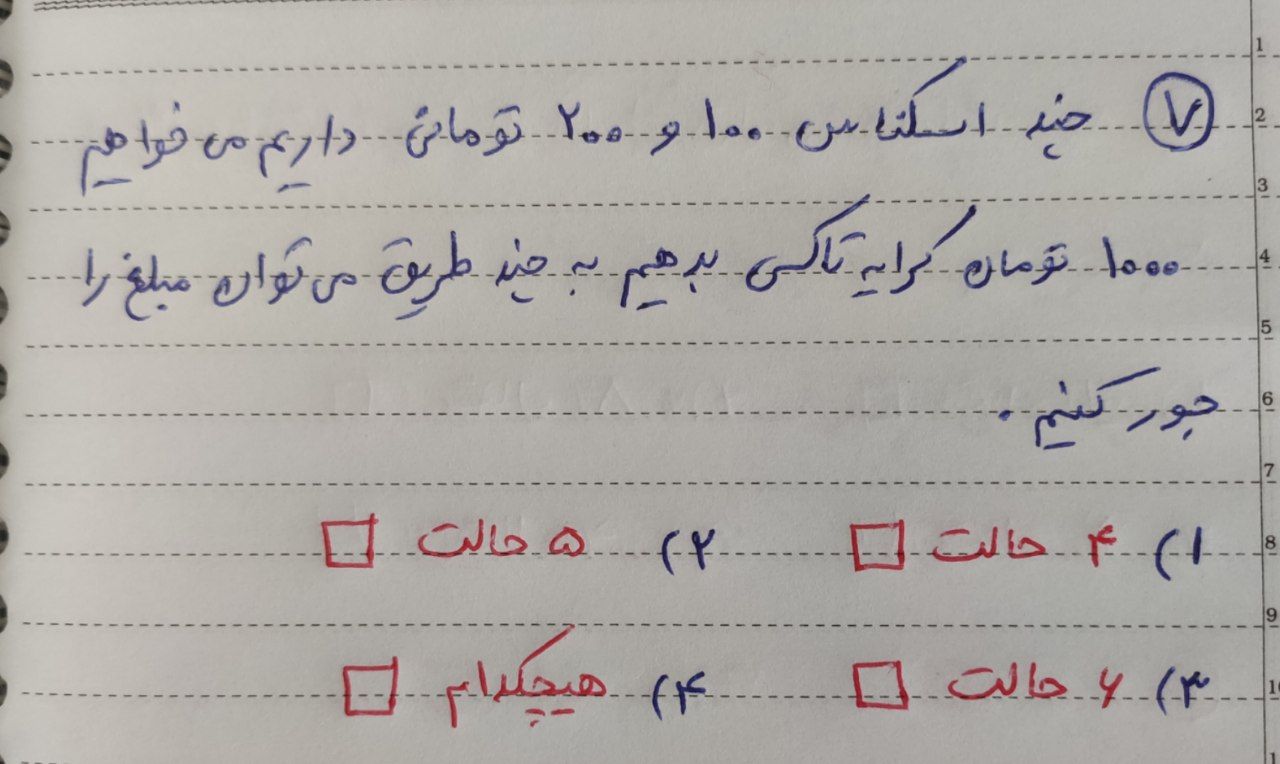 ۷ چند اسکناس ۱۰۰ و ۲۰۰ تومانی داریم می خواهیم
۱۰۰۰ تومان کرایه تاکسی بدهیم به چند طریق می توان مبلغ را
جور کنیم.
۱) ۴ حالت □ ۲) ۵ حالت □
۳) ۶ حالت □ ۴) هیچکدام □
1
2
3
4
5
6
7
8
9